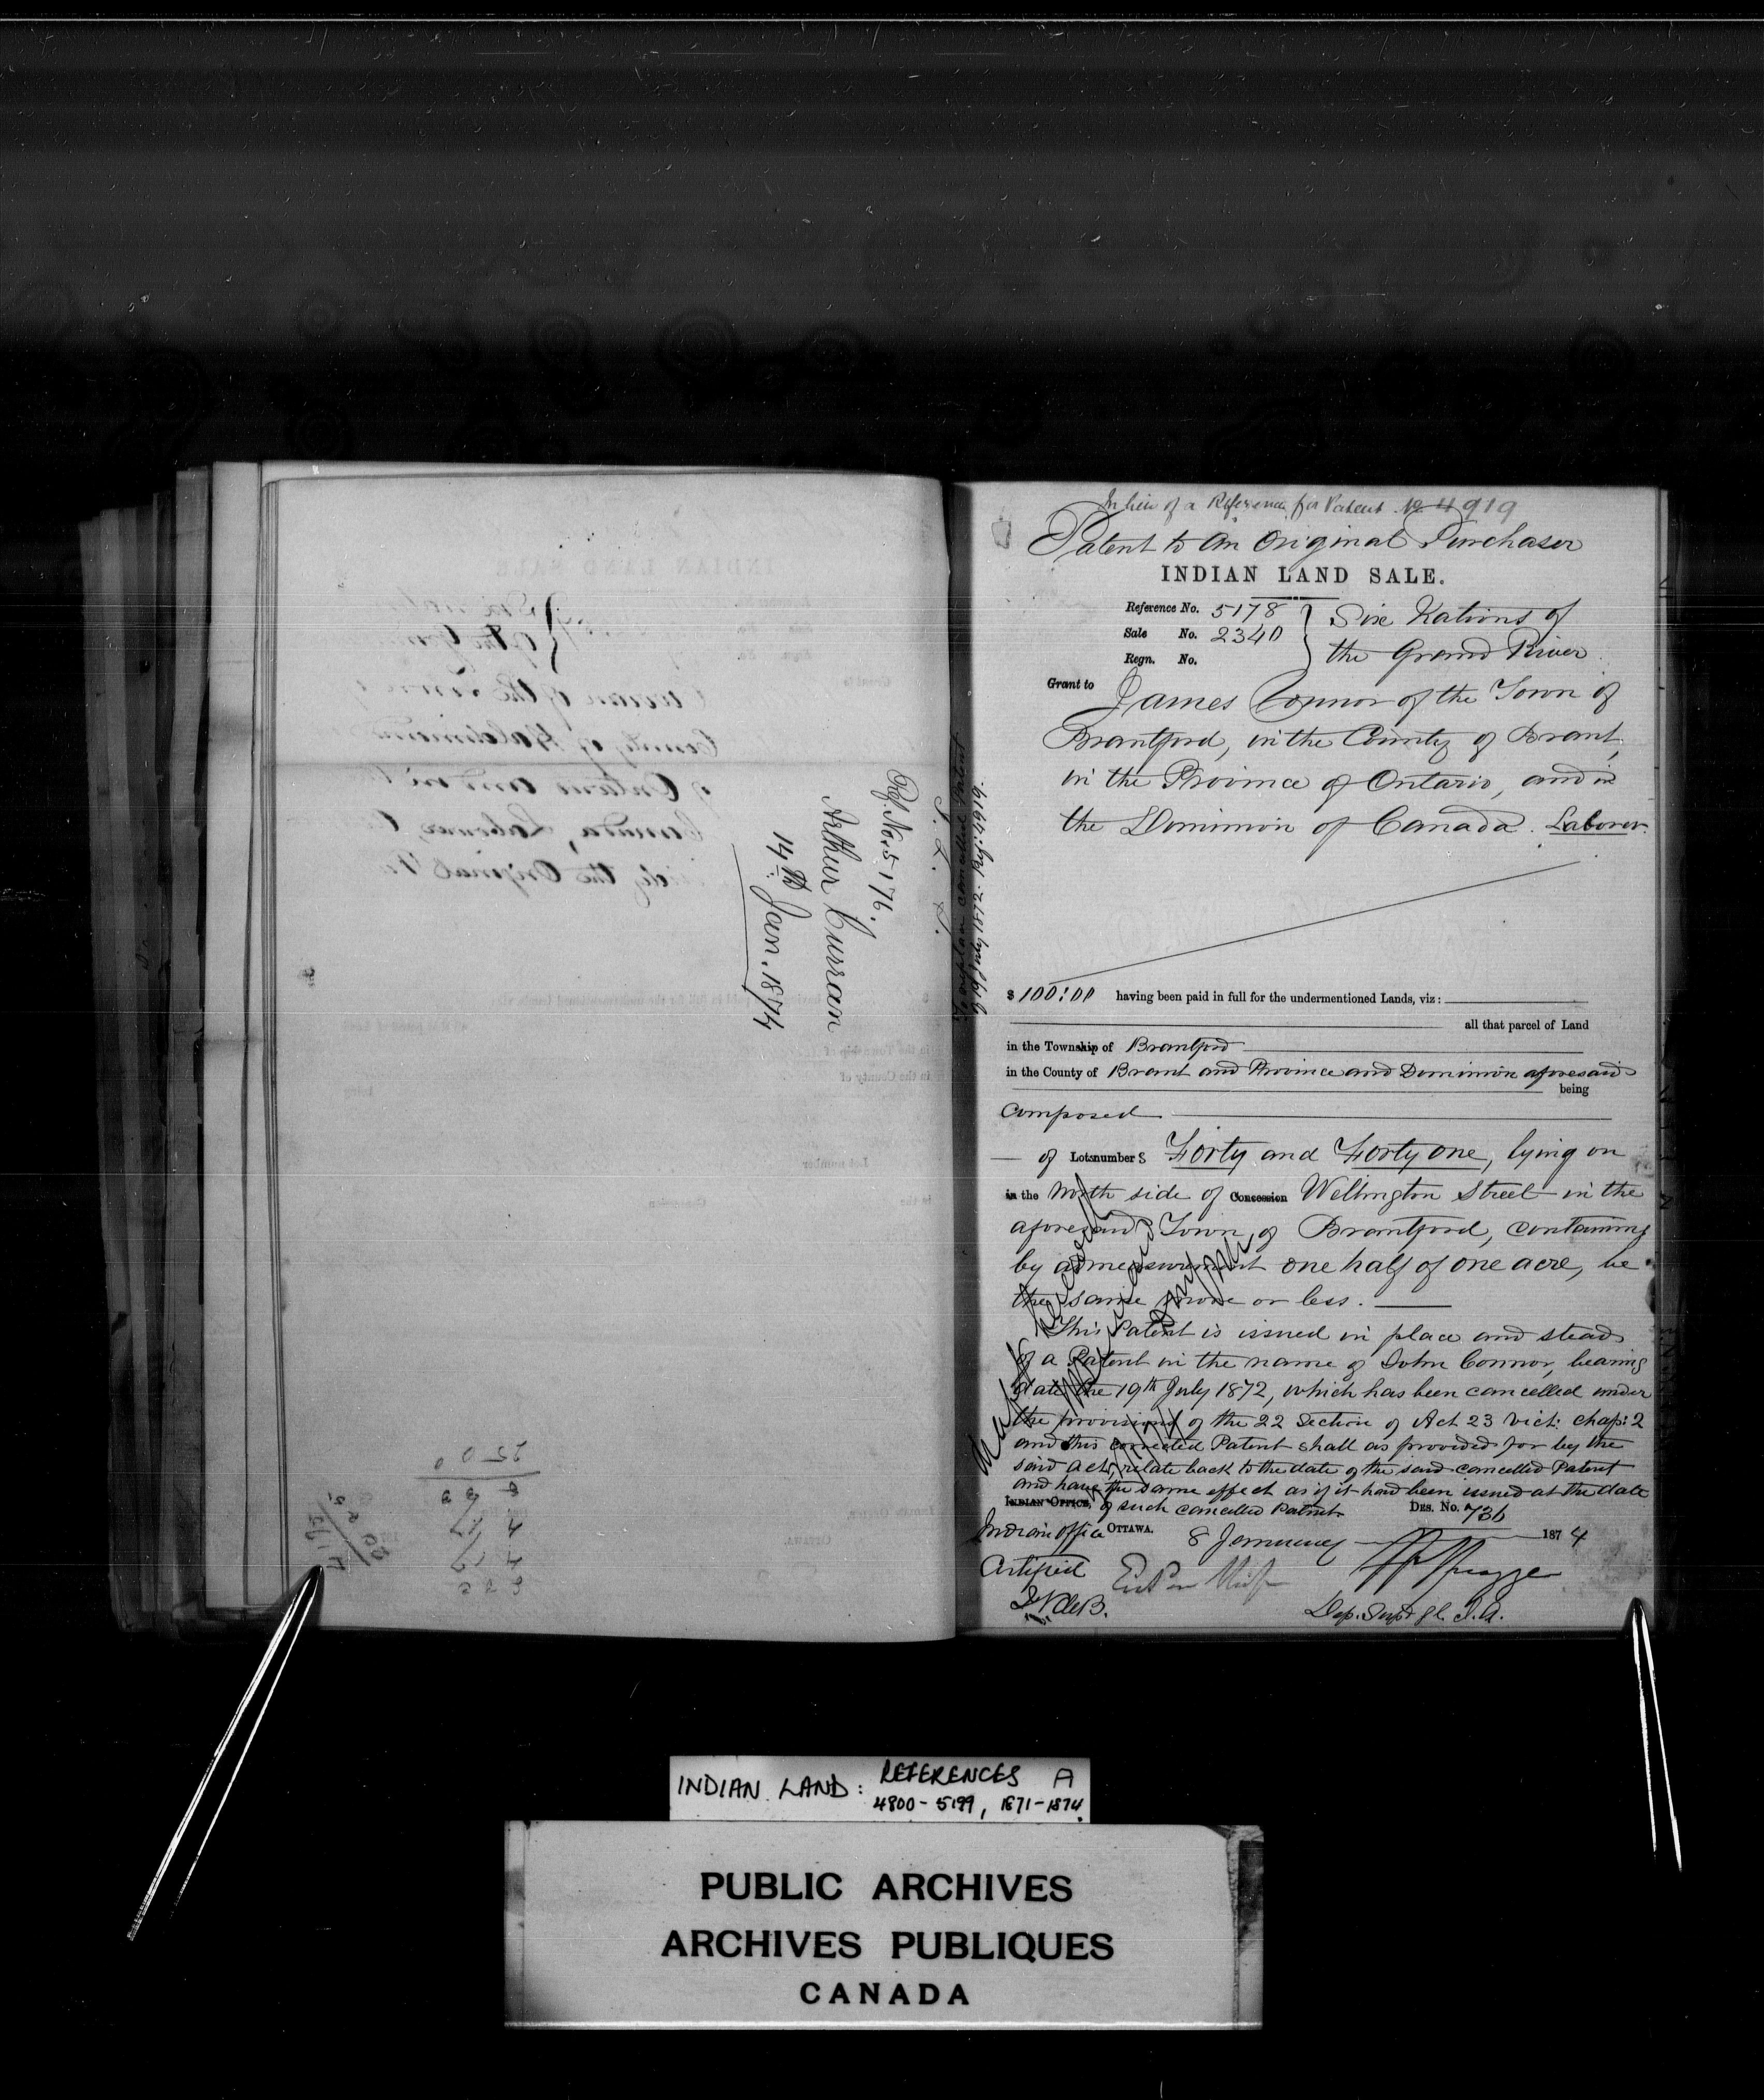 Ref. No. 5176.
Arthur Curran
14th Jan. 1874
To replace cancelled Patent
of 19 July 1872. Ref: 4919.
In lieu of a Reference for Patent No 4919
Patent to an Original Purchaser
INDIAN LAND SALE.
Reference No. 5178
Sale No. 2340
Regn. No.
Six Nations of
the Grand River
Grant to James Connor of the Town of
Brantford, in the County of Brant,
in the Province of Ontario, and in
the Dominion of Canada. Laborer.
$ 100:00 having been paid in full for the undermentioned Lands, viz:
all that parcel of Land
in the Township of Brantford
in the County of Brant and Province and Dominion aforesaid
being
Composed
of Lots numbers Forty and Forty one, lying on
in the North side of Concession Wellington Street in the
aforesaid Town of Brantford, containing
by admeasurement one half of one acre, be
the same more or less.
This Patent is issued in place and stead
of a Patent in the name of John Connor, bearing
date the 19th July 1872, which has been cancelled under
the provisions of the 22 Section of Act 23 Vict: chap: 2
and this corrected Patent shall as provided for by the
said Act, relate back to the date of the said cancelled Patent
and have the same effect as if it had been issued at the date
INDIAN OFFICE, of such cancelled Patent DES. No. 736
Indian Office OTTAWA. 8 January 1874
Certified
Dep. Supt Gl. I.A.
INDIAN LAND: REFERENCES A
4800-5199, 1871-1874.
PUBLIC ARCHIVES
ARCHIVES PUBLIQUES
CANADA